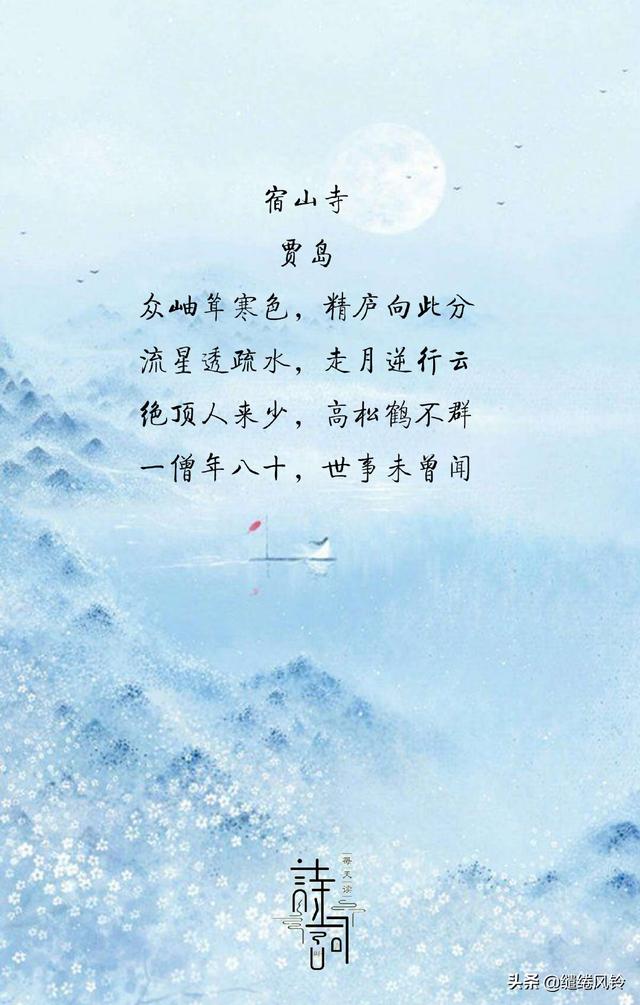 宿山寺
贾岛
众岫耸寒色，精庐向此分
流星透疏水，走月逆行云
绝顶人来少，高松鹤不群
一僧年八十，世事未曾闻
每天读
诗词
头条 @缱绻风铃